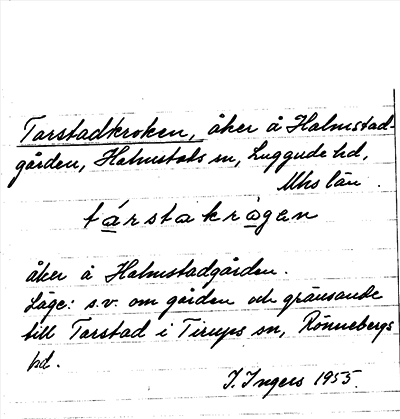 Tarstadkroken, åker å Halmstad-
gården, Halmstads sn, Luggude hd,
Mhs län.
társtakrågan
åker å Halmstadgården.
Läge: s.v. om gården och gränsande
till Tarstad i Tirups sn, Rönnebergs
hd.
I. Ingers 1955.